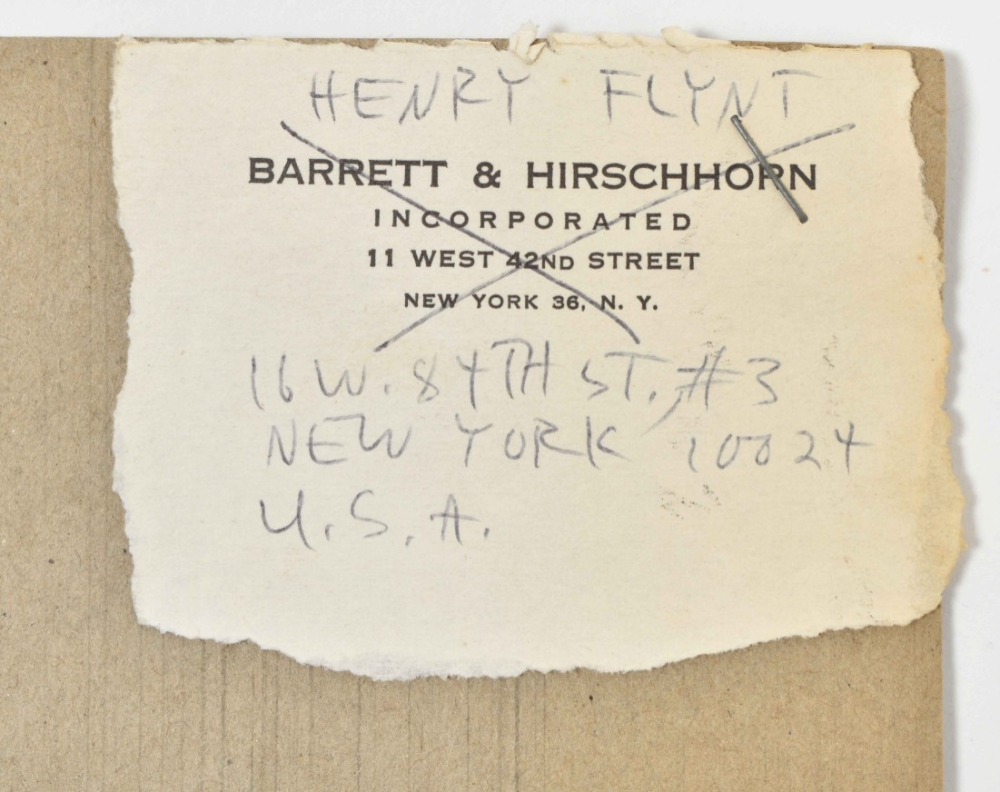 HENRY FLYNT
BARRETT & HIRSCHHORN
INCORPORATED
11 WEST 42ND STREET
NEW YORK 36, N. Y.
16 W. 84TH ST., #3
NEW YORK 10024
U.S.A.